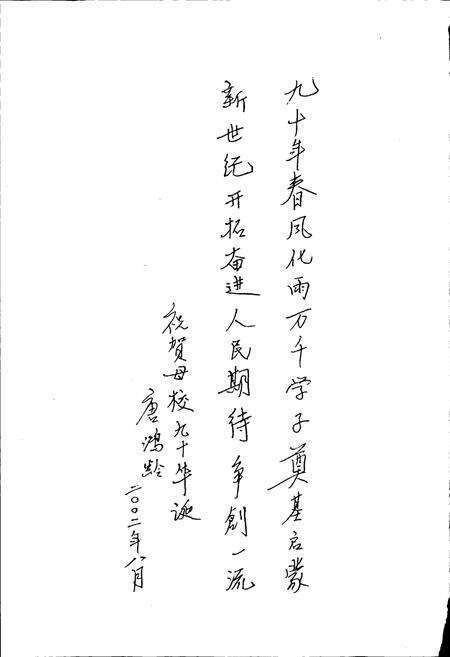 九十年春风化雨万千学子奠基启蒙
新世纪开拓奋进人民期待争創一流
祝贺母校九十华诞
唐鸿龄
二〇〇二年八月